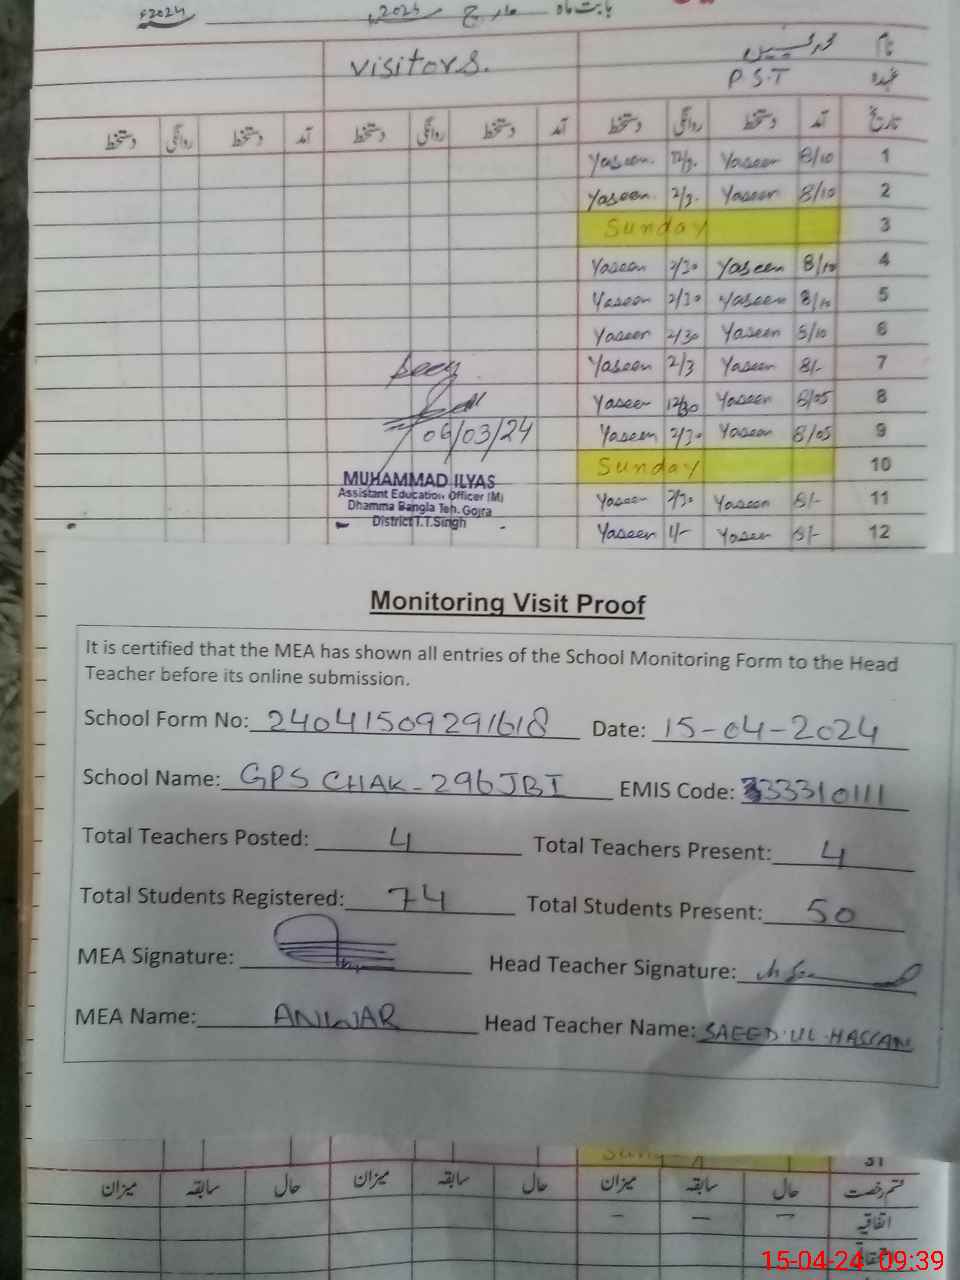 بابت ماہ مارچ 2024ء 2024ء
نام
visitors.
عہدہ P S.T
تاریخ آمد دستخط روانگی دستخط آمد دستخط روانگی دستخط آمد دستخط روانگی دستخط
1 8/10 Yaseen Yaseen
2 8/10 Yaseen 2/3. Yaseen
3 Sunday
4 8/10 Yaseen 2/30 Yaseen
5 8/10 Yaseen 2/30 Yaseen
6 8/10 Yaseen 2/30 Yaseen
7 8/- Yaseen 2/3 Yaseen
8 8/05 Yaseen 12/30 Yaseen
9 8/05 Yaseen 2/30 Yaseen
10 Sunday
11 8/- Yaseen 2/30 Yaseen
12 8/- Yaseen 1/- Yaseen
Seen
06/03/24
MUHAMMAD ILYAS
Assistant Education Officer (M)
Dhamma Bangla Teh. Gojra
District T.T.Singh
Monitoring Visit Proof
It is certified that the MEA has shown all entries of the School Monitoring Form to the Head
Teacher before its online submission.
School Form No: 24041509291618 Date: 15-04-2024
School Name: GPS CHAK-296JBI EMIS Code: 33310111
Total Teachers Posted: 4 Total Teachers Present: 4
Total Students Registered: 74 Total Students Present: 50
MEA Signature: Head Teacher Signature:
MEA Name: ANWAR Head Teacher Name: SAEED-UL-HASSAN
31 Sunday
قسم رخصت حال سابقہ میزان حال سابقہ میزان حال سابقہ میزان
اتفاقیہ – – –
15-04-24 09:39